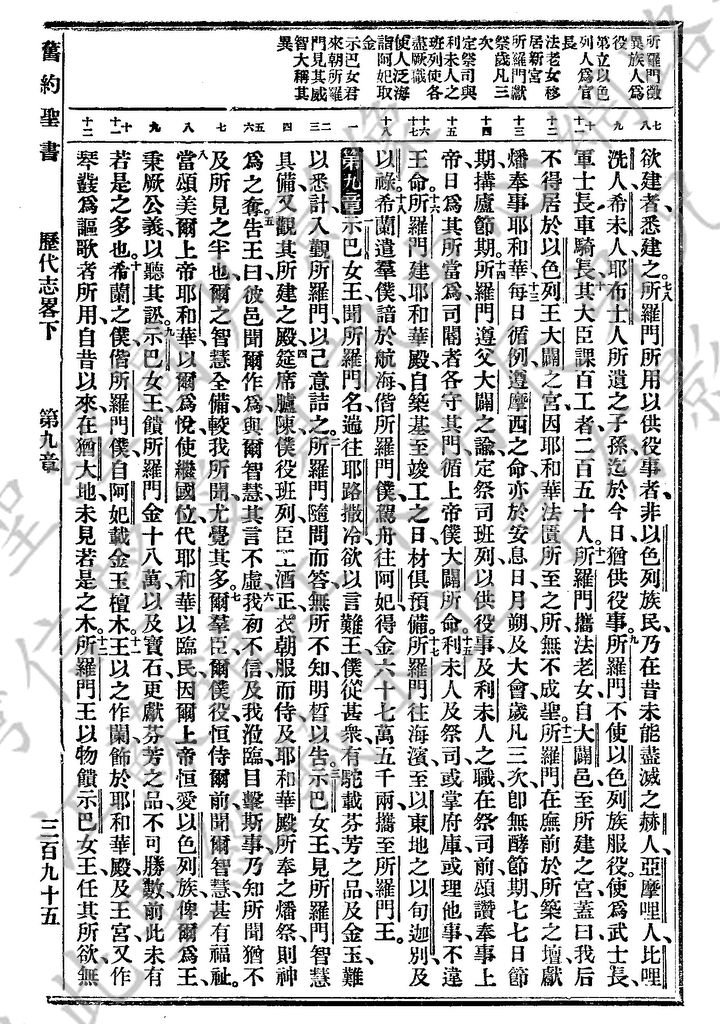 所羅門徵
異族人爲
役
第立以色
列人爲官
長
法老女移
居新宮
所羅門獻
祭歲凡三
次
定祭司與
利未人之
班列使各
盡厥職
使人泛海
詣阿妃取
金
示巴女君
來朝所羅
門見其威
智大稱其
異
欲建者悉建之所羅門所用以供役事者非以色列族民乃在昔未能盡滅之赫人亞摩哩人比哩
洗人希未人耶布士人所遺之子孫迄於今日猶供役事所羅門不使以色列族服役使爲武士長
軍士長車騎長其大臣課百工者二百五十人所羅門攜法老女自大闢邑至所建之宮蓋曰我后
不得居於以色列王大闢之宮因耶和華法匱所至之所無不成聖所羅門在廡前於所築之壇獻
燔奉事耶和華每日循例遵摩西之命亦於安息日月朔及大會歲凡三次卽無酵節期七七日節
期搆廬節期所羅門遵父大闢之諭定祭司班列以供役事及利未人之職在祭司前頌讚奉事上
帝日爲其所當爲司閽者各守其門循上帝僕大闢所命利未人及祭司或掌府庫或理他事不違
王命所羅門建耶和華殿自築基至竣工之日材俱預備所羅門往海濱至以東地之以旬迦別及
以祿希蘭遣羣僕諳於航海偕所羅門僕駕舟往阿妃得金六十七萬五千兩攜至所羅門王
第九章 示巴女王聞所羅門名遄往耶路撒冷欲以言難王僕從甚衆有駝載芬芳之品及金玉難
以悉計入覲所羅門以己意詰之所羅門隨問而答無所不知明晳以告示巴女王見所羅門智慧
具備又觀其所建之殿筵席臚陳僕役班列臣工酒正衣朝服而侍及耶和華殿所奉之燔祭則神
爲之奪告王曰彼邑聞爾作爲與爾智慧其言不虛我初不信及我涖臨目擊斯事乃知所聞猶不
及所見之半也爾之智慧全備較我所聞尤覺其多爾羣臣爾僕役恒侍爾前聞爾智慧甚有福祉
當頌美爾上帝耶和華以爾爲悅使繼國位代耶和華以臨民因爾上帝恒愛以色列族俾爾爲王
秉厥公義以聽其訟示巴女王饋所羅門金十八萬以及寶石更獻芬芳之品不可勝數前此未有
若是之多也希蘭之僕偕所羅門僕自阿妃載金玉檀木王以之作闌飾於耶和華殿及王宮又作
琴瑟爲謳歌者所用自昔以來在猶大地未見若是之木所羅門王以物饋示巴女王任其所欲無
舊約聖書 歷代志畧下 第九章 三百九十五